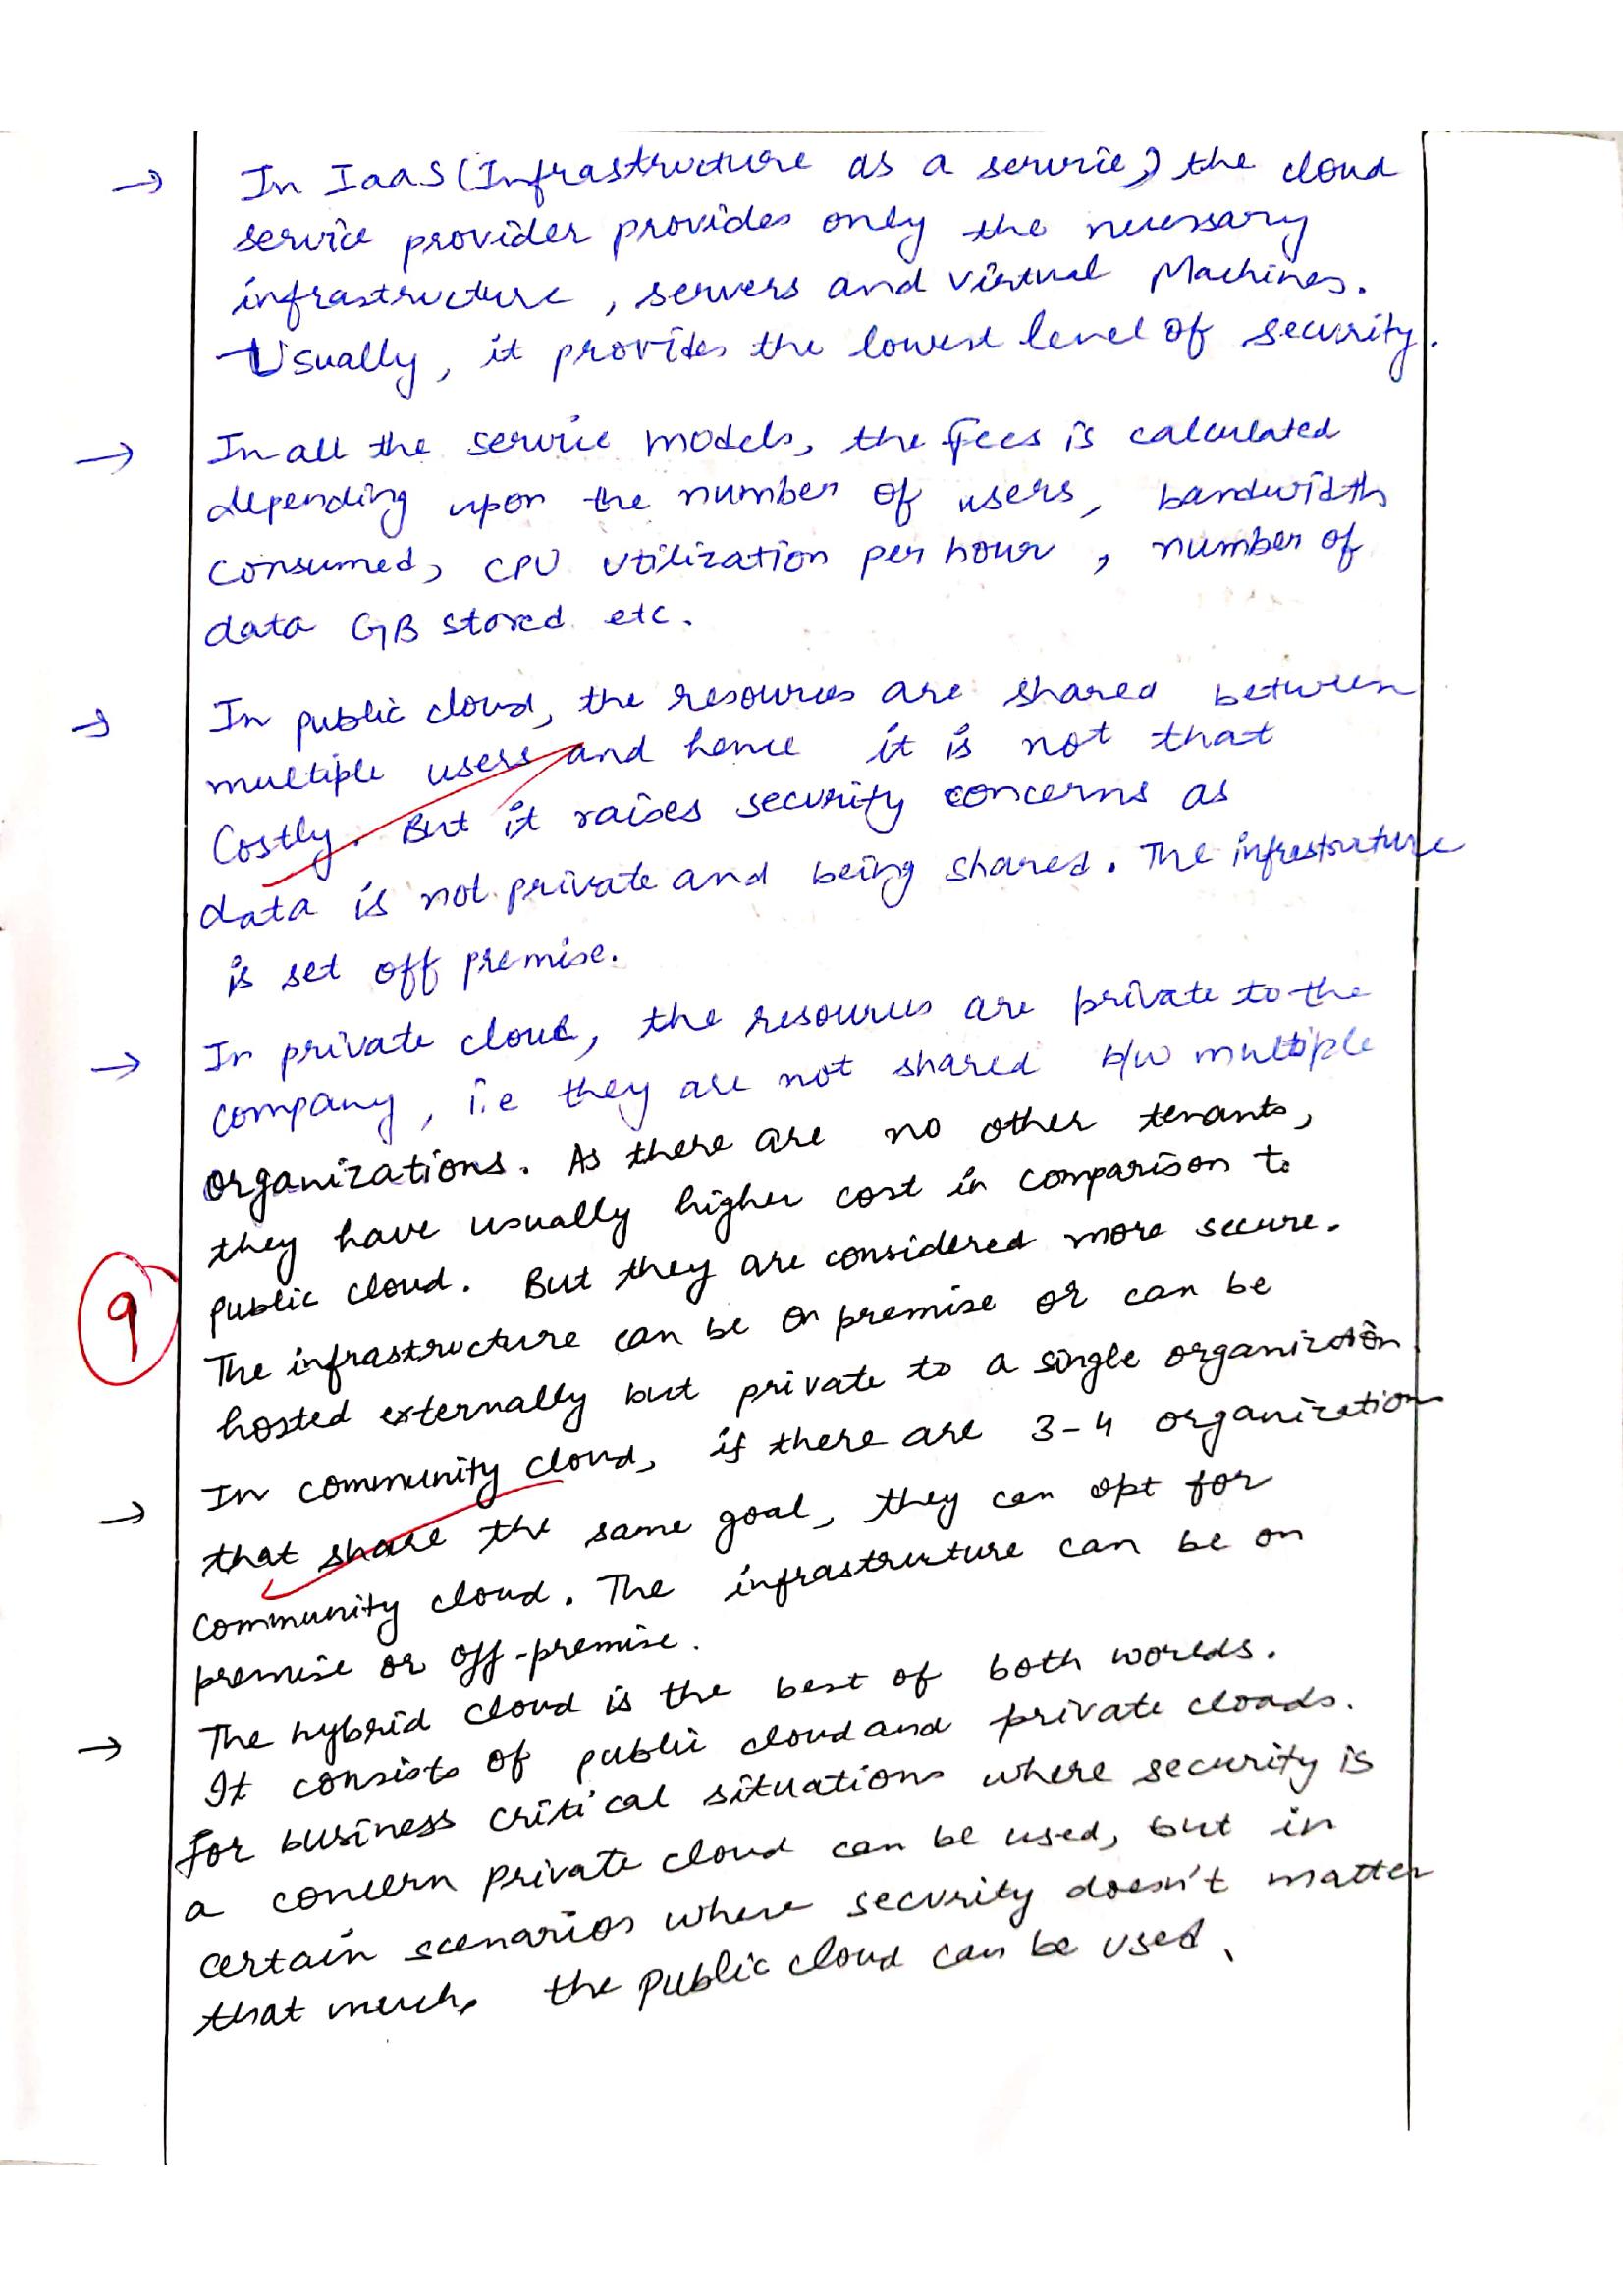 → In IaaS (Infrastructure as a service) the cloud
service provider provides only the necessary
infrastructure, servers and virtual Machines.
Usually, it provides the lowest level of security.
→ In all the service models, the fees is calculated
depending upon the number of users, bandwidth
consumed, CPU utilization per hour, number of
data GB stored etc.
→ In public cloud, the resources are shared between
multiple users and hence it is not that
Costly. But it raises security concerns as
data is not private and being shared. The infrastructure
is set off premise.
→ In private cloud, the resources are private to the
company, i.e they are not shared b/w multiple
organizations. As there are no other tenants,
they have usually higher cost in comparison to
public cloud. But they are considered more secure.
9
The infrastructure can be on premise or can be
hosted externally but private to a single organization.
→ In community cloud, if there are 3-4 organization
that share the same goal, they can opt for
community cloud. The infrastructure can be on
premise or off-premise.
→ The hybrid cloud is the best of both worlds.
It consists of public cloud and private clouds.
for business critical situations where security is
a concern private cloud can be used, but in
certain scenarios where security doesn't matter
that much, the public cloud can be used.